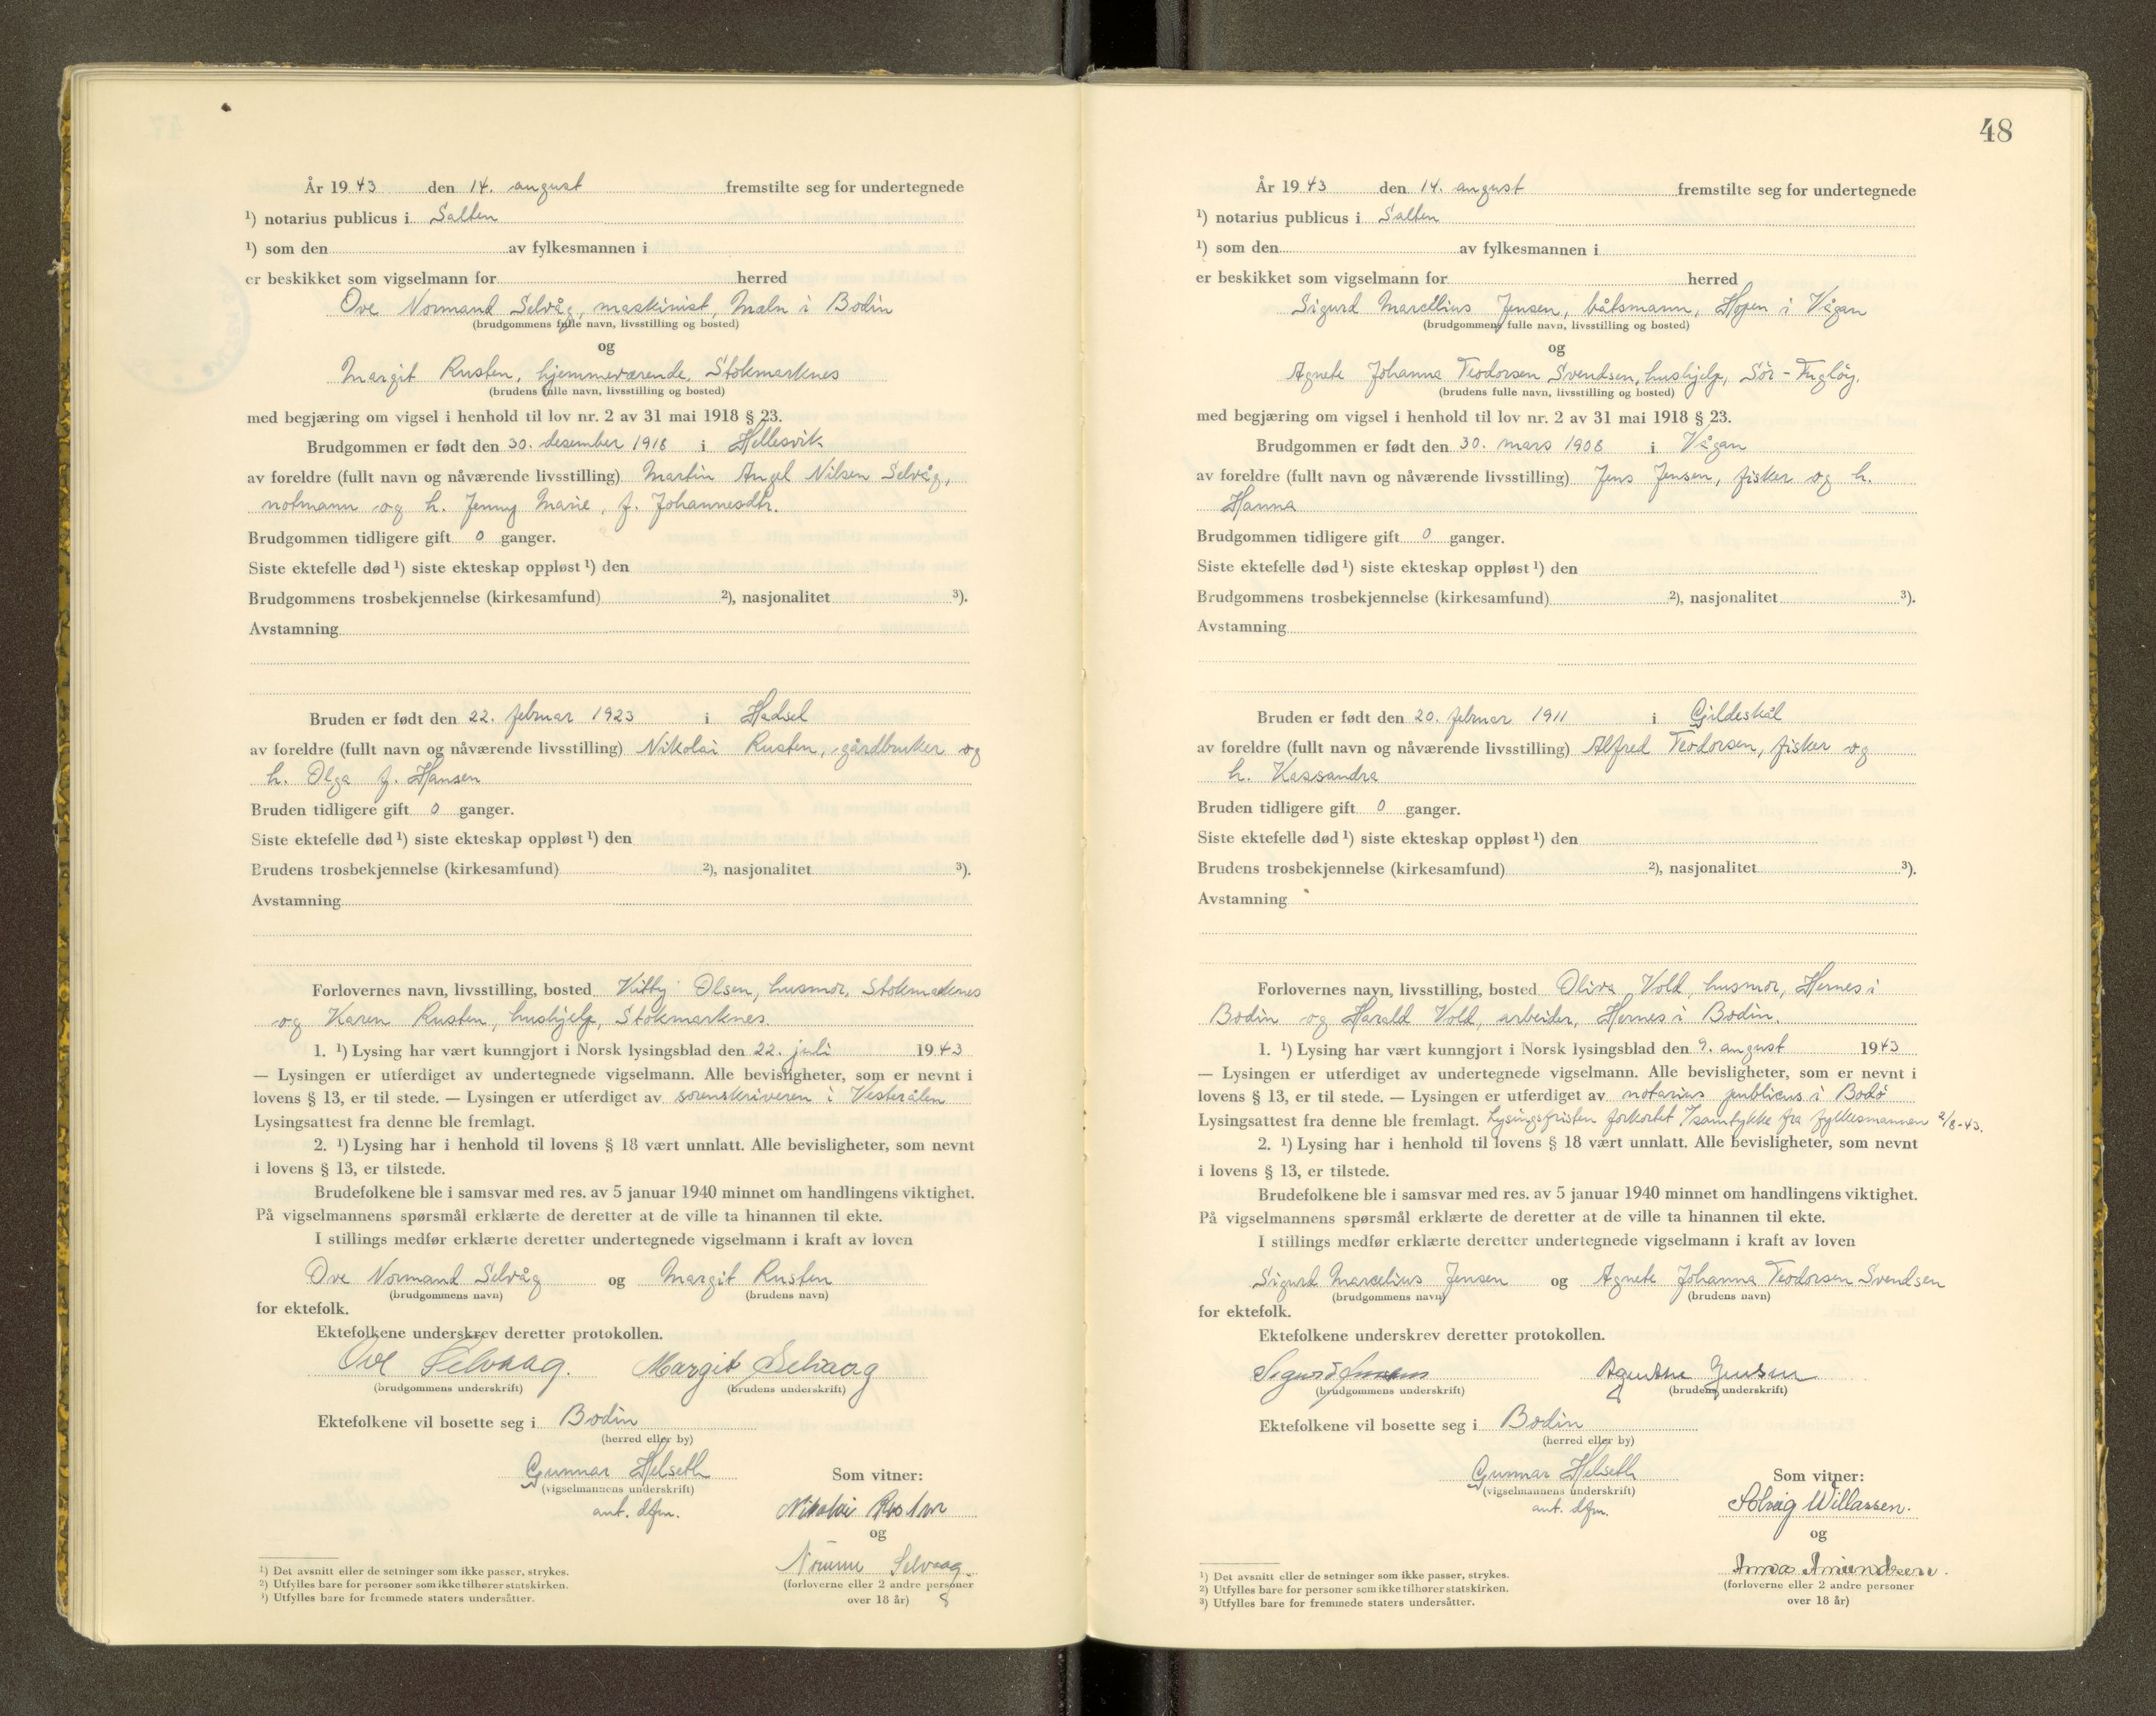 År 1943 den 14. august fremstilte seg for undertegnede
¹) notarius publicus i Salten
¹) som den av fylkesmannen i
er beskikket som vigselmann for herred
Ove Normand Selvåg, maskinist, Mæln i Bodin
(brudgommens fulle navn, livsstilling og bosted)
og
Margit Rusten, hjemmeværende, Stokmarknes
(brudens fulle navn, livsstilling og bosted)
med begjæring om vigsel i henhold til lov nr. 2 av 31 mai 1918 § 23.
Brudgommen er født den 30. desember 1918 i Hellesvik
av foreldre (fullt navn og nåværende livsstilling) Martin Angel Nilsen Selvåg,
notmann og h. Jenny Marie, f. Johannesdtr.
Brudgommen tidligere gift 0 ganger.
Siste ektefelle død ¹) siste ekteskap oppløst ¹) den
Brudgommens trosbekjennelse (kirkesamfund) ²), nasjonalitet ³).
Avstamning
Bruden er født den 22. februar 1923 i Hadsel
av foreldre (fullt navn og nåværende livsstilling) Nikolai Rusten, gårdbruker og
h. Olga f. Hansen
Bruden tidligere gift 0 ganger.
Siste ektefelle død ¹) siste ekteskap oppløst ¹) den
Brudens trosbekjennelse (kirkesamfund) ²), nasjonalitet ³).
Avstamning
Forlovernes navn, livsstilling, bosted Kitty Olsen, husmor, Stokmarknes
og Karen Rusten, hushjelp, Stokmarknes.
1. ¹) Lysing har vært kunngjort i Norsk lysingsblad den 22. juli 1943
— Lysingen er utferdiget av undertegnede vigselmann. Alle bevisligheter, som er nevnt i
lovens § 13, er til stede. — Lysingen er utferdiget av sorenskriveren i Vesterålen
Lysingsattest fra denne ble fremlagt.
2. ¹) Lysing har i henhold til lovens § 18 vært unnlatt. Alle bevisligheter, som nevnt
i lovens § 13, er tilstede.
Brudefolkene ble i samsvar med res. av 5 januar 1940 minnet om handlingens viktighet.
På vigselmannens spørsmål erklærte de deretter at de ville ta hinannen til ekte.
I stillings medfør erklærte deretter undertegnede vigselmann i kraft av loven
Ove Normand Selvåg og Margit Rusten
(brudgommens navn) (brudens navn)
for ektefolk.
Ektefolkene underskrev deretter protokollen.
Ove Selvaag. Margit Selvaag
(brudgommens underskrift) (brudens underskrift)
Ektefolkene vil bosette seg i Bodin
(herred eller by)
Gunnar Helseth Som vitner:
(vigselmannens underskrift)
aut. dfm. Nikolai Rusten
og
Selvaag.
(forloverne eller 2 andre personer
over 18 år) 8
¹) Det avsnitt eller de setninger som ikke passer, strykes.
²) Utfylles bare for personer som ikke tilhører statskirken.
³) Utfylles bare for fremmede staters undersåtter.
48
År 1943 den 14. august fremstilte seg for undertegnede
¹) notarius publicus i Salten
¹) som den av fylkesmannen i
er beskikket som vigselmann for herred
Sigurd Marcelius Jensen, båtsmann, Hopen i Vågan
(brudgommens fulle navn, livsstilling og bosted)
og
Agnete Johanna Teodorsen Svendsen, hushjelp, Sör-Fugløy.
(brudens fulle navn, livsstilling og bosted)
med begjæring om vigsel i henhold til lov nr. 2 av 31 mai 1918 § 23.
Brudgommen er født den 30. mars 1908 i Vågan
av foreldre (fullt navn og nåværende livsstilling) Jens Jensen, fisker og h.
Hanna
Brudgommen tidligere gift 0 ganger.
Siste ektefelle død ¹) siste ekteskap oppløst ¹) den
Brudgommens trosbekjennelse (kirkesamfund) ²), nasjonalitet ³).
Avstamning
Bruden er født den 20. februar 1911 i Gildeskål
av foreldre (fullt navn og nåværende livsstilling) Alfred Teodorsen, fisker og
h. Kassandra
Bruden tidligere gift 0 ganger.
Siste ektefelle død ¹) siste ekteskap oppløst ¹) den
Brudens trosbekjennelse (kirkesamfund) ²), nasjonalitet ³).
Avstamning
Forlovernes navn, livsstilling, bosted Oliva Vold, husmor, Hernes i
Bodin og Harald Vold, arbeider, Hernes i Bodin.
1. ¹) Lysing har vært kunngjort i Norsk lysingsblad den 9. august 1943
— Lysingen er utferdiget av undertegnede vigselmann. Alle bevisligheter, som er nevnt i
lovens § 13, er til stede. — Lysingen er utferdiget av notarius publicus i Bodö
Lysingsattest fra denne ble fremlagt. Lysingsfristen forkortet i samtykke fra fylkesmannen 2/8-43.
2. ¹) Lysing har i henhold til lovens § 18 vært unnlatt. Alle bevisligheter, som nevnt
i lovens § 13, er tilstede.
Brudefolkene ble i samsvar med res. av 5 januar 1940 minnet om handlingens viktighet.
På vigselmannens spørsmål erklærte de deretter at de ville ta hinannen til ekte.
I stillings medfør erklærte deretter undertegnede vigselmann i kraft av loven
Sigurd Marcelius Jensen og Agnete Johanna Teodorsen Svendsen
(brudgommens navn) (brudens navn)
for ektefolk.
Ektefolkene underskrev deretter protokollen.
Sigurd Jensen Agnethe Jensen
(brudgommens underskrift) (brudens underskrift)
Ektefolkene vil bosette seg i Bodin
(herred eller by)
Gunnar Helseth Som vitner:
(vigselmannens underskrift)
aut. dfm. Solveig Willassen.
og
Anna Amundsen.
(forloverne eller 2 andre personer
over 18 år)
¹) Det avsnitt eller de setninger som ikke passer, strykes.
²) Utfylles bare for personer som ikke tilhører statskirken.
³) Utfylles bare for fremmede staters undersåtter.